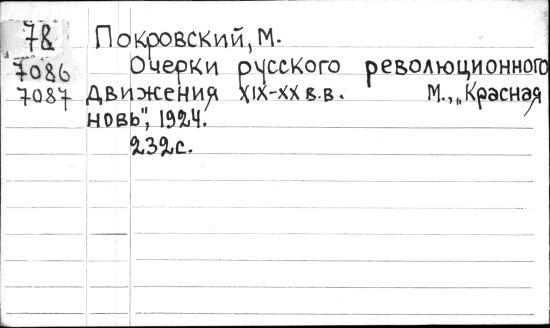 78 Покровский, М.
7086 Очерки русского революционного
7087 движения XIX-XX в.в. М., „Красная
новь", 1924.
232с.